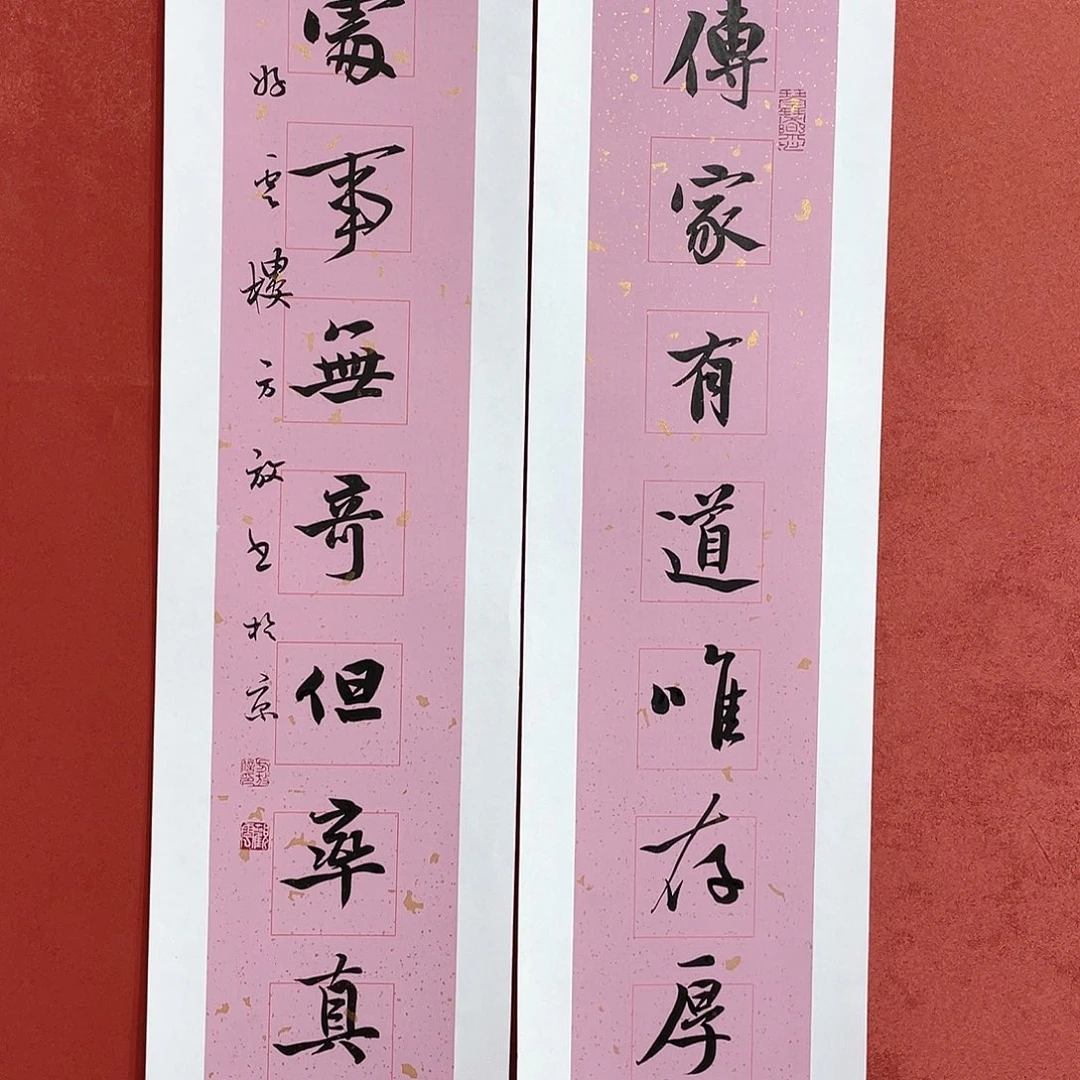 傳家有道唯存厚
處事無奇但率真
好雲樓方放書於京